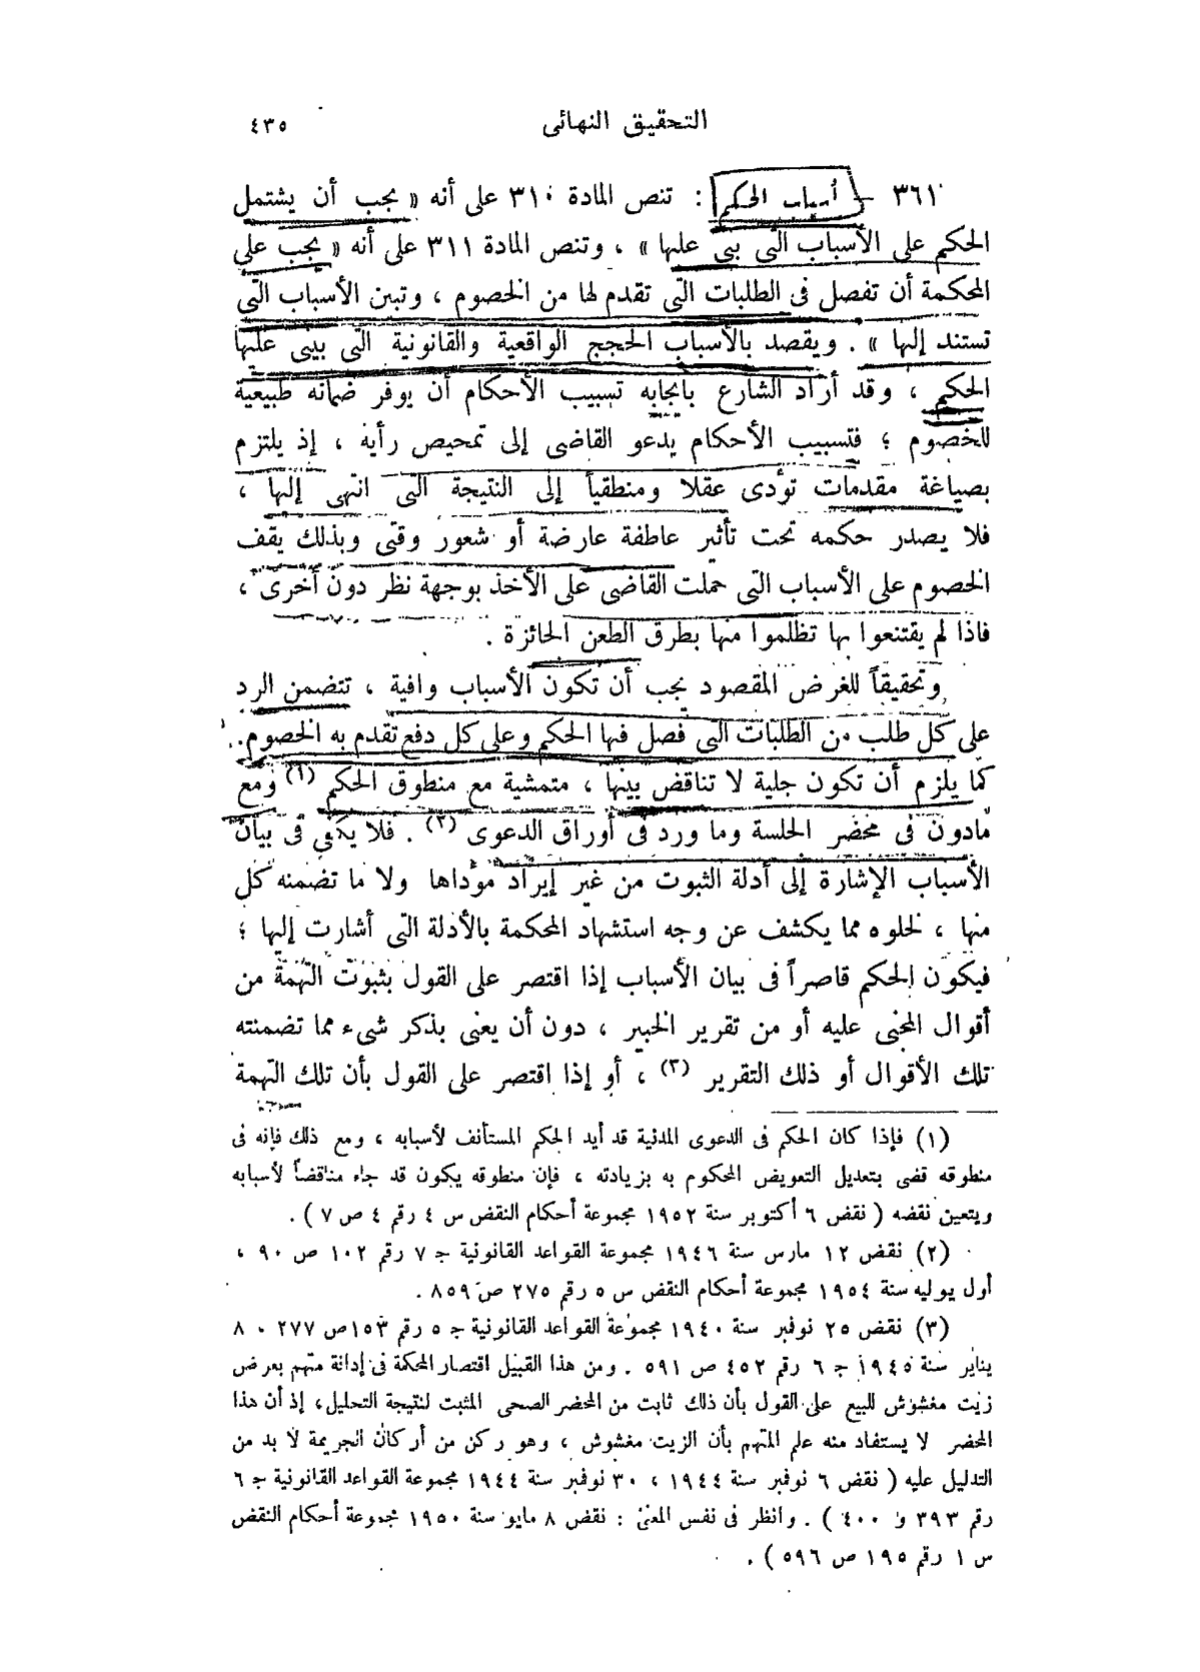 التحقيق النهائى
٤٣٥
٣٦١ – أسباب الحكم : تنص المادة ٣١٠ على أنه « يجب أن يشتمل
الحكم على الأسباب التى بنى عليها » ، وتنص المادة ٣١١ على أنه « يجب على
المحكمة أن تفصل فى الطلبات التى تقدم لها من الخصوم ، وتبين الأسباب التى
تستند إليها » . ويقصد بالأسباب الحجج الواقعية والقانونية التى يبنى عليها
الحكم ، وقد أراد الشارع بايجابه تسبيب الأحكام أن يوفر ضمانه طبيعية
للخصوم ؛ فتسبيب الأحكام يدعو القاضى إلى تمحيص رأيه ، إذ يلتزم
بصياغة مقدمات تؤدى عقلا ومنطقياً إلى النتيجة التى انتهى إليها ،
فلا يصدر حكمه تحت تأثير عاطفة عارضة أو شعور وقتى وبذلك يقف
الخصوم على الأسباب التى حملت القاضى على الأخذ بوجهة نظر دون أخرى ،
فاذا لم يقتنعوا بها تظلموا منها بطرق الطعن الجائزة .
وتحقيقاً للغرض المقصود يجب أن تكون الأسباب وافية ، تتضمن الرد
على كل طلب من الطلبات التى فصل فيها الحكم وعلى كل دفع تقدم به الخصوم .
كما يلزم أن تكون جلية لا تناقض بينها ، متمشية مع منطوق الحكم (١) ومع
مادون فى محضر الجلسة وما ورد فى أوراق الدعوى (٢) . فلا يكفى فى بيان
الأسباب الإشارة إلى أدلة الثبوت من غير إيراد مؤداها ولا ما تضمنه كل
منها ، لخلوه مما يكشف عن وجه استشهاد المحكمة بالأدلة التى أشارت إليها ؛
فيكون الحكم قاصراً فى بيان الأسباب إذا اقتصر على القول بثبوت التهمة من
أقوال المجنى عليه أو من تقرير الخبير ، دون أن يعنى بذكر شىء مما تضمنته
تلك الأقوال أو ذلك التقرير (٣) ، أو إذا اقتصر على القول بأن تلك التهمة
(١) فإذا كان الحكم فى الدعوى المدنية قد أيد الحكم المستأنف لأسبابه ، ومع ذلك فإنه فى
منطوقه قضى بتعديل التعويض المحكوم به بزيادته ، فإن منطوقه يكون قد جاء مناقضاً لأسبابه
ويتعين نقضه ( نقض ٦ أكتوبر سنة ١٩٥٢ مجموعة أحكام النقض س ٤ رقم ٤ ص ٧ ) .
(٢) نقض ١٢ مارس سنة ١٩٤٦ مجموعة القواعد القانونية ج ٧ رقم ١٠٢ ص ٩٠ ،
أول يوليه سنة ١٩٥٤ مجموعة أحكام النقض س ٥ رقم ٢٧٥ ص ٨٥٩ .
(٣) نقض ٢٥ نوفمبر سنة ١٩٤٠ مجموعة القواعد القانونية ج ٥ رقم ١٥٣ ص ٢٧٧ . ٨
يناير سنة ١٩٤٥ ج ٦ رقم ٤٥٢ ص ٥٩١ . ومن هذا القبيل اقتصار المحكمة فى إدانة متهم بعرض
زيت مغشوش للبيع على القول بأن ذلك ثابت من المحضر الصحى المثبت لنتيجة التحليل ، إذ أن هذا
المحضر لا يستفاد منه علم المتهم بأن الزيت مغشوش ، وهو ركن من أركان الجريمة لا بد من
التدليل عليه ( نقض ٦ نوفمبر سنة ١٩٤٤ ، ٣٠ نوفمبر سنة ١٩٤٤ مجموعة القواعد القانونية ج ٦
رقم ٣٩٣ و ٤٠٠ ) . وانظر فى نفس المعنى : نقض ٨ مايو سنة ١٩٥٠ مجموعة أحكام النقض
س ١ رقم ١٩٥ ص ٥٩٦ ) .